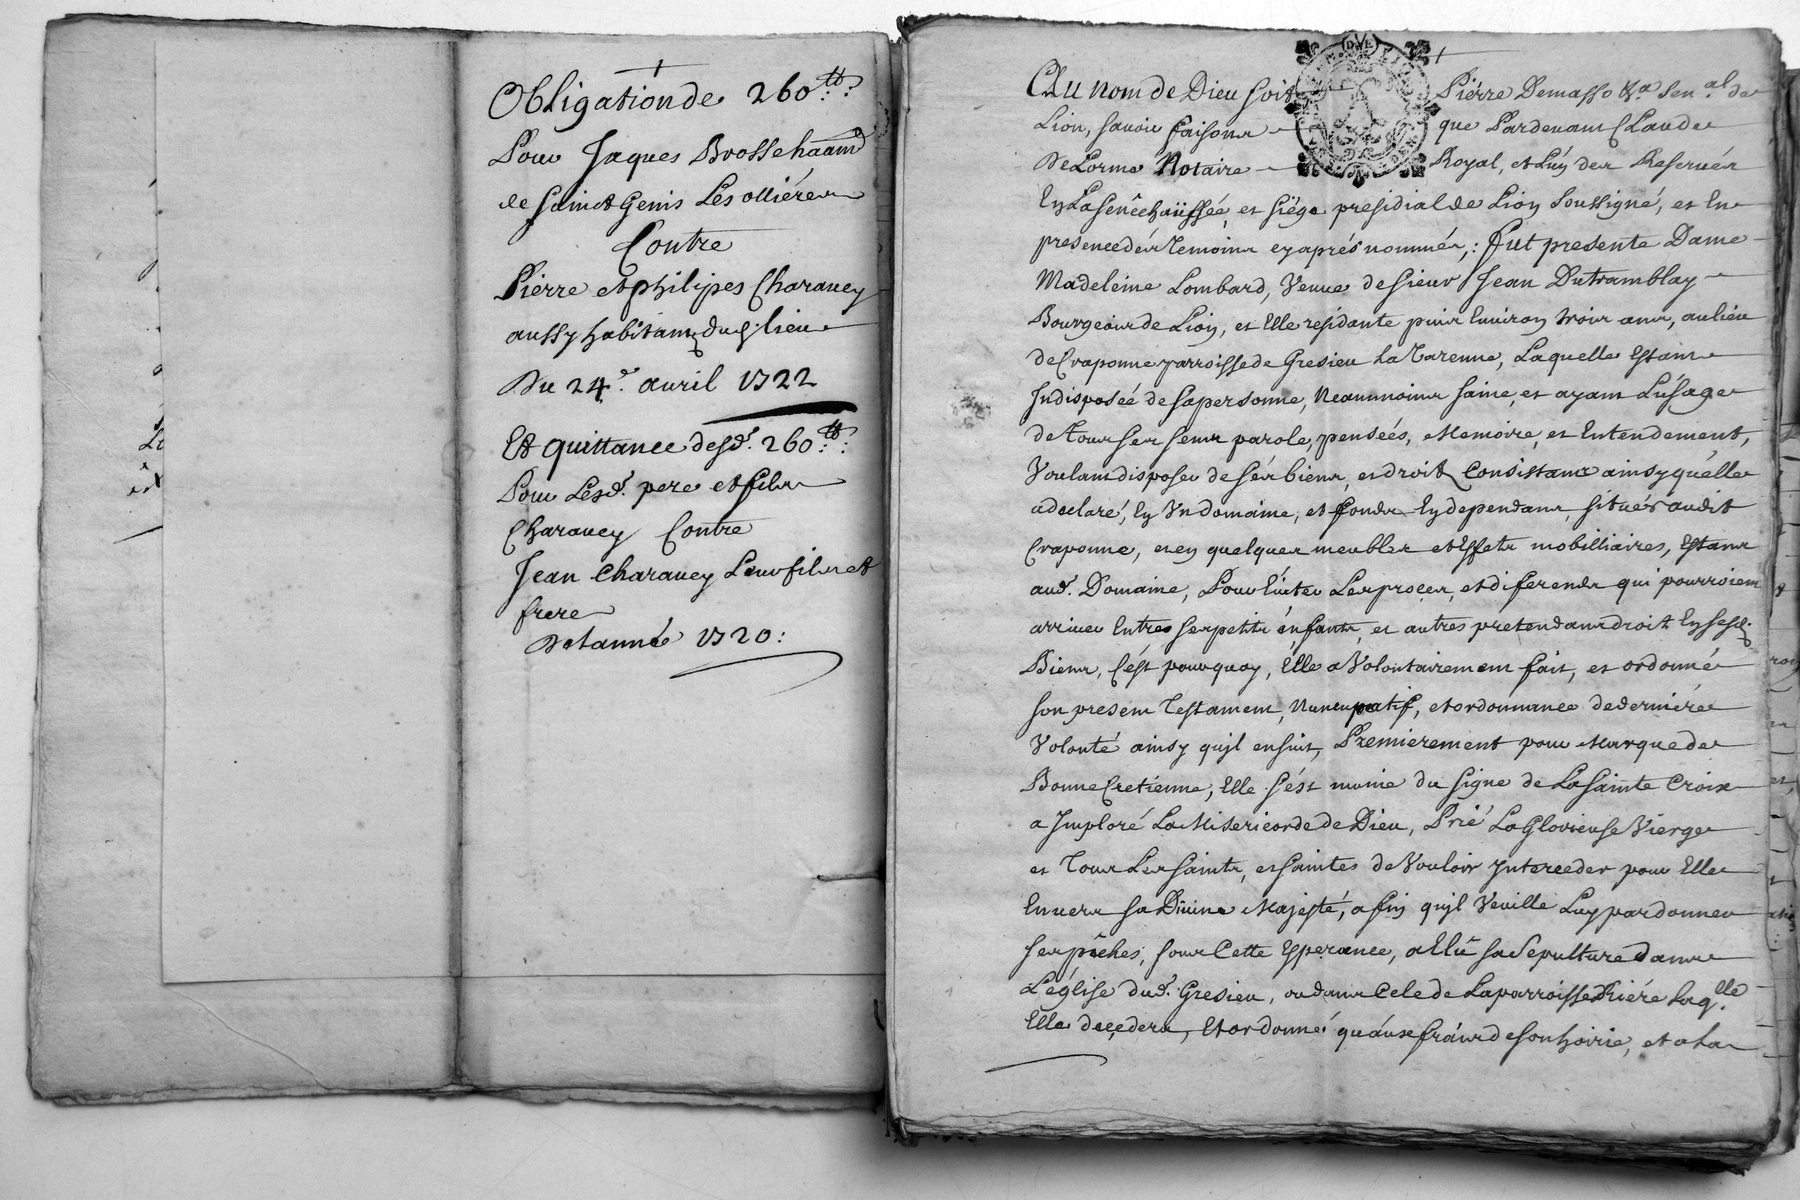 Obligation de 260 ₶:
Pour Jaques Brossehaamd
de Sainct Genis Les ollières
Contre
Pierre et philipes Charavey
aussy habitans dud. lieu
Du 24e. auril 1722
Et quittance desd. 260 ₶:
Pour Lesd. pere et fils
Charavey Contre
Jean Charavey Leur fils et
frere
De Lannée 1720:
Au nom de Dieu soit Pierre Demasso sen.al de
Lion, sauoir faisons que Pardeuant Claude
DeLorme Notaire Royal, et Luy des Reserués
En La senêchaüssée, et siége presidial de Lion soussigné, et En
presence des Temoins cy aprés nommés; fut presente Dame
Madeleine Lombard, Veuue de sieur Jean Dutramblay
Bourgeois de Lion, et Elle residante puis Enuiron trois ans, au lieu
de Craponne parroisse de Gresieu La Varenne, Laquelle Estant
Indisposée de sa personne, Neanmoins saine, et ayant L'usage
de Tous ses sens parole, pensées, Memoire, et Entendement,
Voulant disposer de sés biens, et droits Consistans ainsy qu'elle
a declaré, En Un domaine, et fonds En dependans, situés audit
Craponne, et en quelques meubles et Effets mobilliaires, Estans
aud. Domaine, Pour Euiter Les procés, et diferends qui pourroient
arriuer Entres ses petits énfants, et autres pretendans droit En sesd.
Biens, C'ést pourquoy, Elle a Volontairement fait, et ordonné
son present Testament, Nuncupatif, et ordonnance de derniére
Volonté ainsy qu'jl ensuit, Premierement pour Marque de
Bonne Cretienne, Elle s'ést munie du signe de La Sainte Croix
a Imploré La Misericorde de Dieu, Prié La Glorieuse Vierge
et Tous Les saints, et saintes de Vouloir Interceder pour Elle
Enuers sa Diuine Majesté, afin qu'jl Veuille Luy pardonner
ses pêchés, sous Cette Esperance, a Elû sa Sepulture Dans
L'église dud. Gresieu, ou dans Cele de La parroisse Riére Laqlle.
Elle decedera, Et ordonné qu'aux frais de son hoirie, et a La